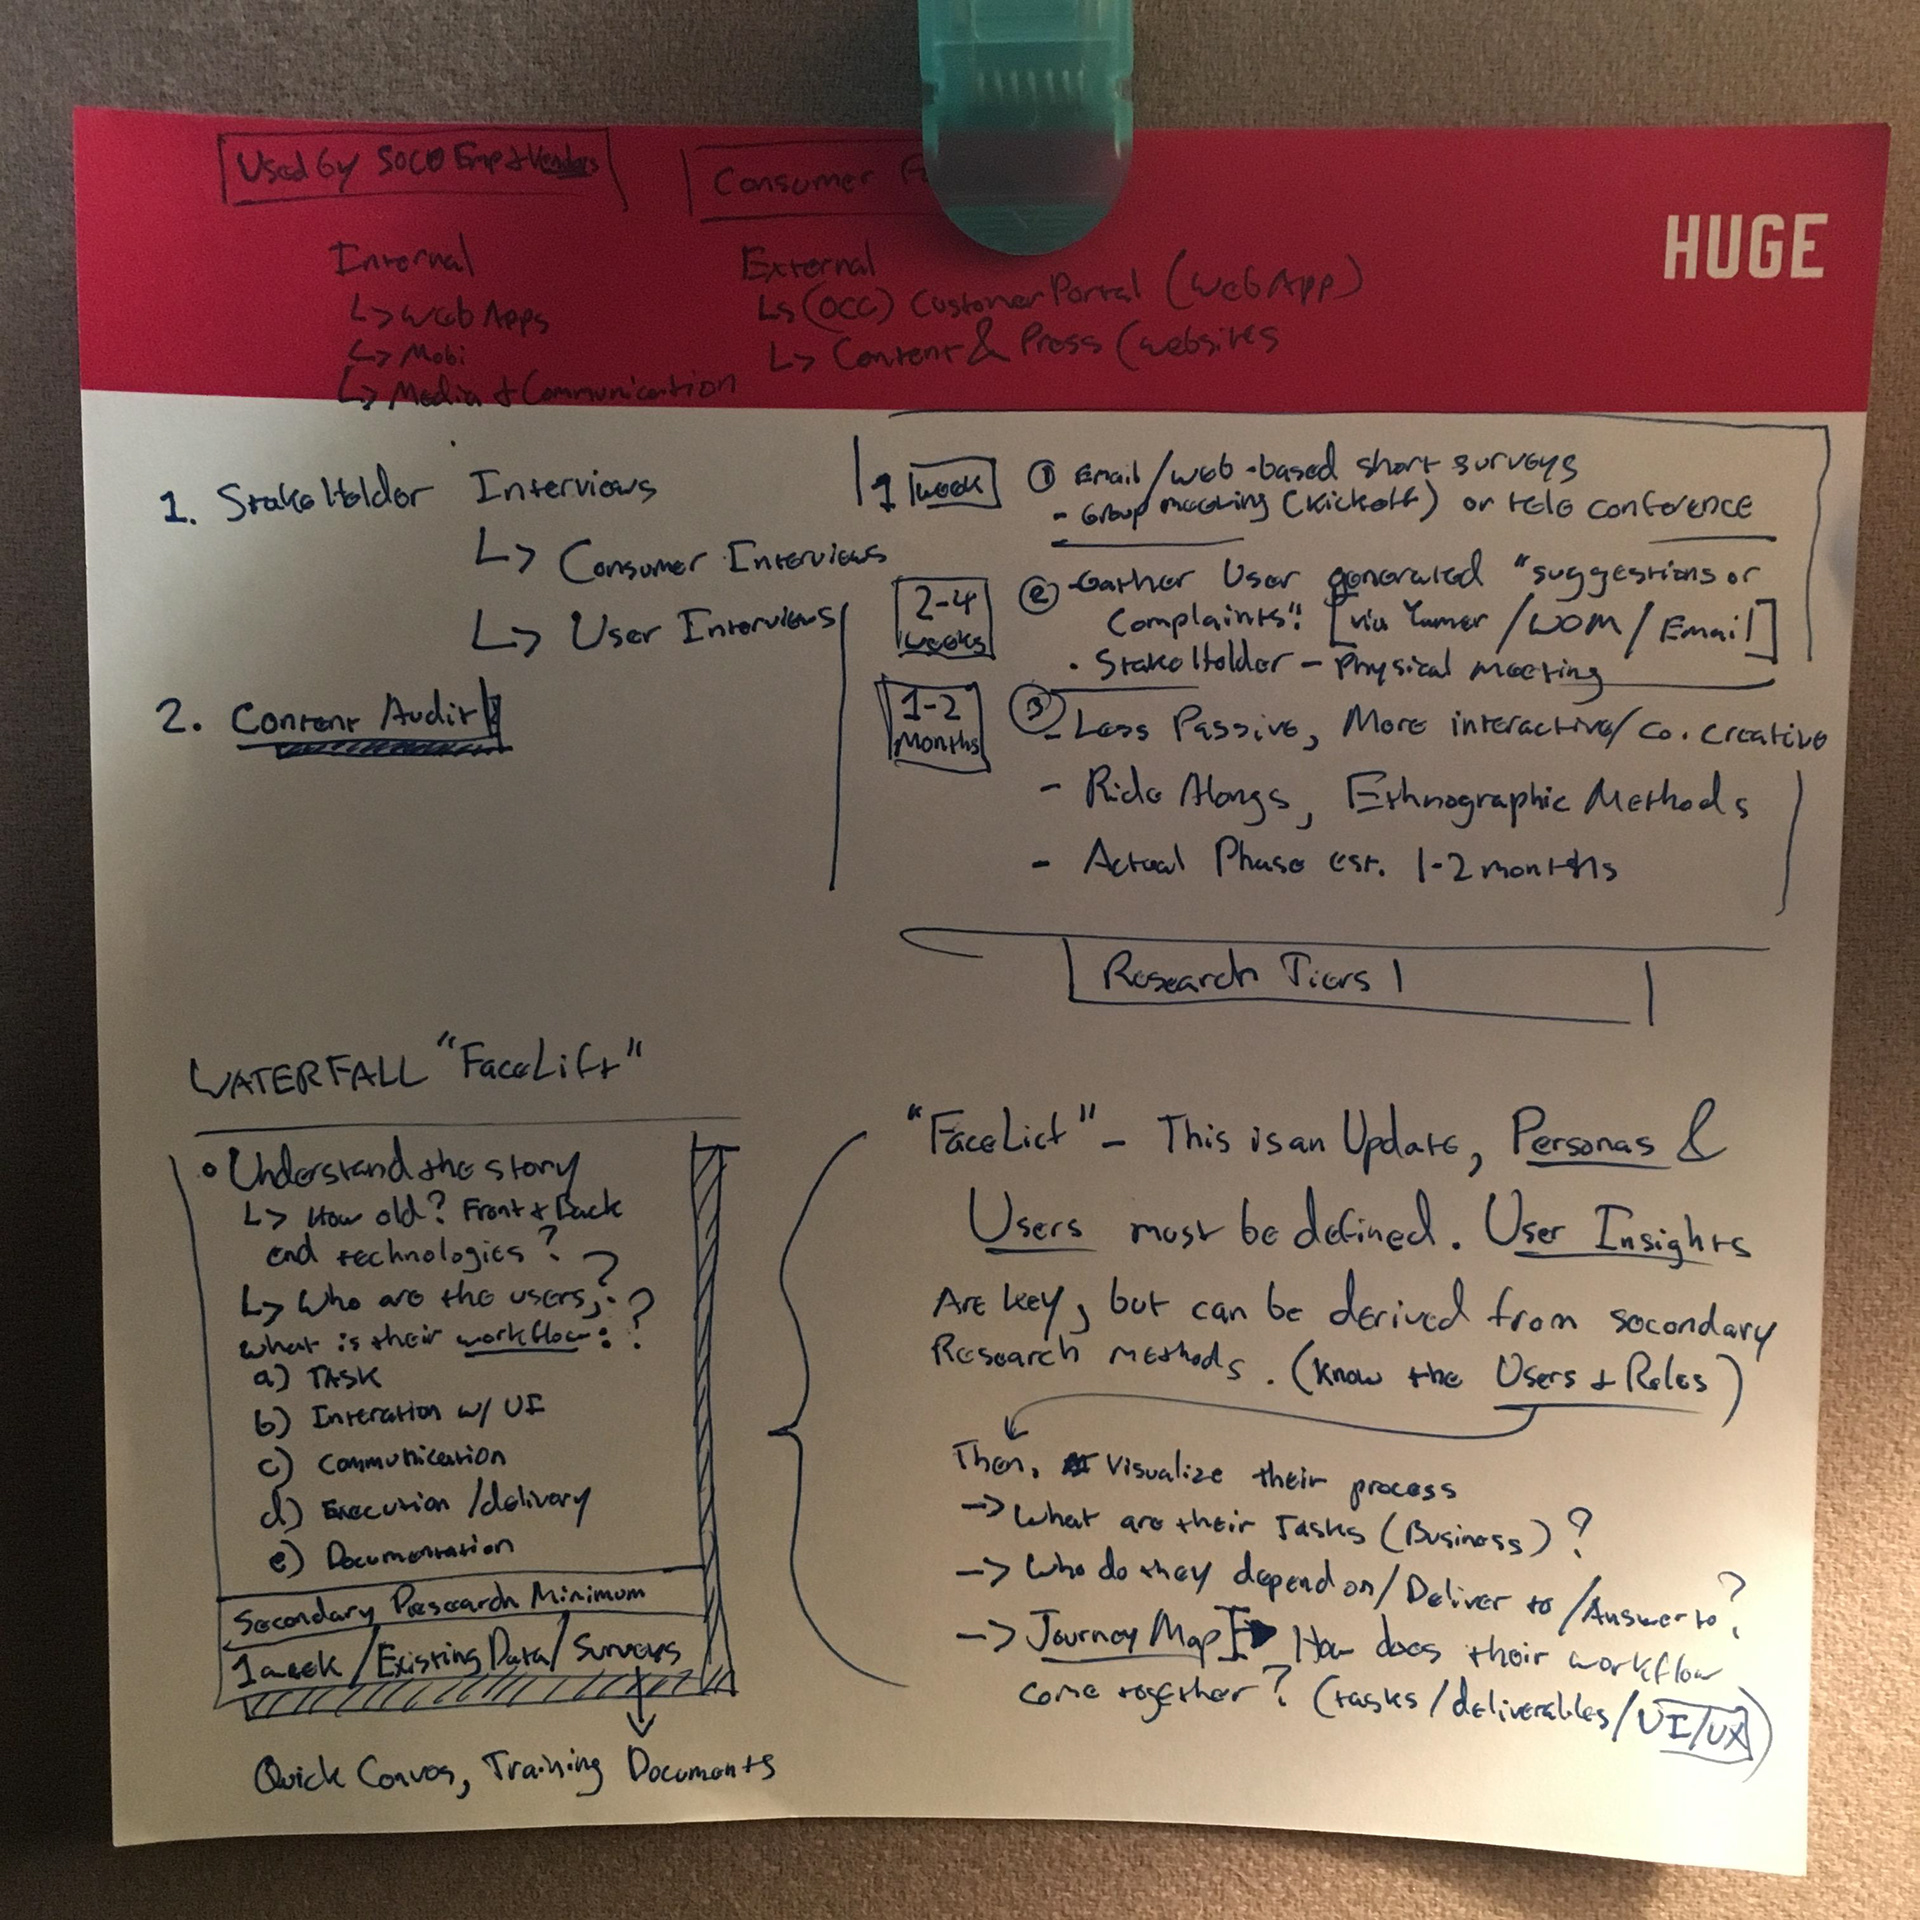 Used by SOCO Emp & Vendors
Consumer
HUGE
Internal
↳ Web Apps
↳ Mobi
↳ Media & Communication
External
↳ (OCC) Customer Portal (Web App)
↳ Content & Press (websites
1. StakeHolder Interviews
↳ Consumer Interviews
↳ User Interviews
2. Content Audit
1 week
① Email/web-based short surveys
- Group meeting (Kickoff) or tele conference
2-4 weeks
② - Gather User generated "suggestions or
Complaints". [via Yamer/WOM/Email]
· StakeHolder - Physical meeting
1-2 Months
③ - Less Passive, More interactive/co-creative
- Ride Alongs, Ethnographic Methods
- Actual Phase est. 1-2 months
Research Tiers
WATERFALL "FaceLift"
• Understand the story
↳ How old? Front & Back
end technologies?
↳ Who are the users,?
what is their workflow: ?
a) TASK
b) Interation w/ UI
c) Communication
d) Execution/delivery
e) Documentation
Secondary Research Minimum
1 week/Existing Data/Surveys
Quick Convos, Training Documents
"FaceLift" - This is an Update, Personas &
Users must be defined. User Insights
Are key, but can be derived from secondary
Research methods. (Know the Users & Roles)
Then, Visualize their process
-> What are their Tasks (Business)?
-> Who do they depend on/Deliver to/Answer to?
-> Journey Map How does their workflow
come together? (tasks/deliverables/UI/UX)